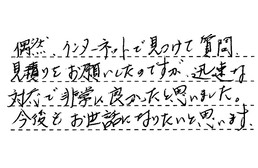 偶然、インターネットで見つけて質問、
見積りをお願いしたのですが、迅速な
対応で非常に良かったと思いました。
今後もお世話になりたいと思います。